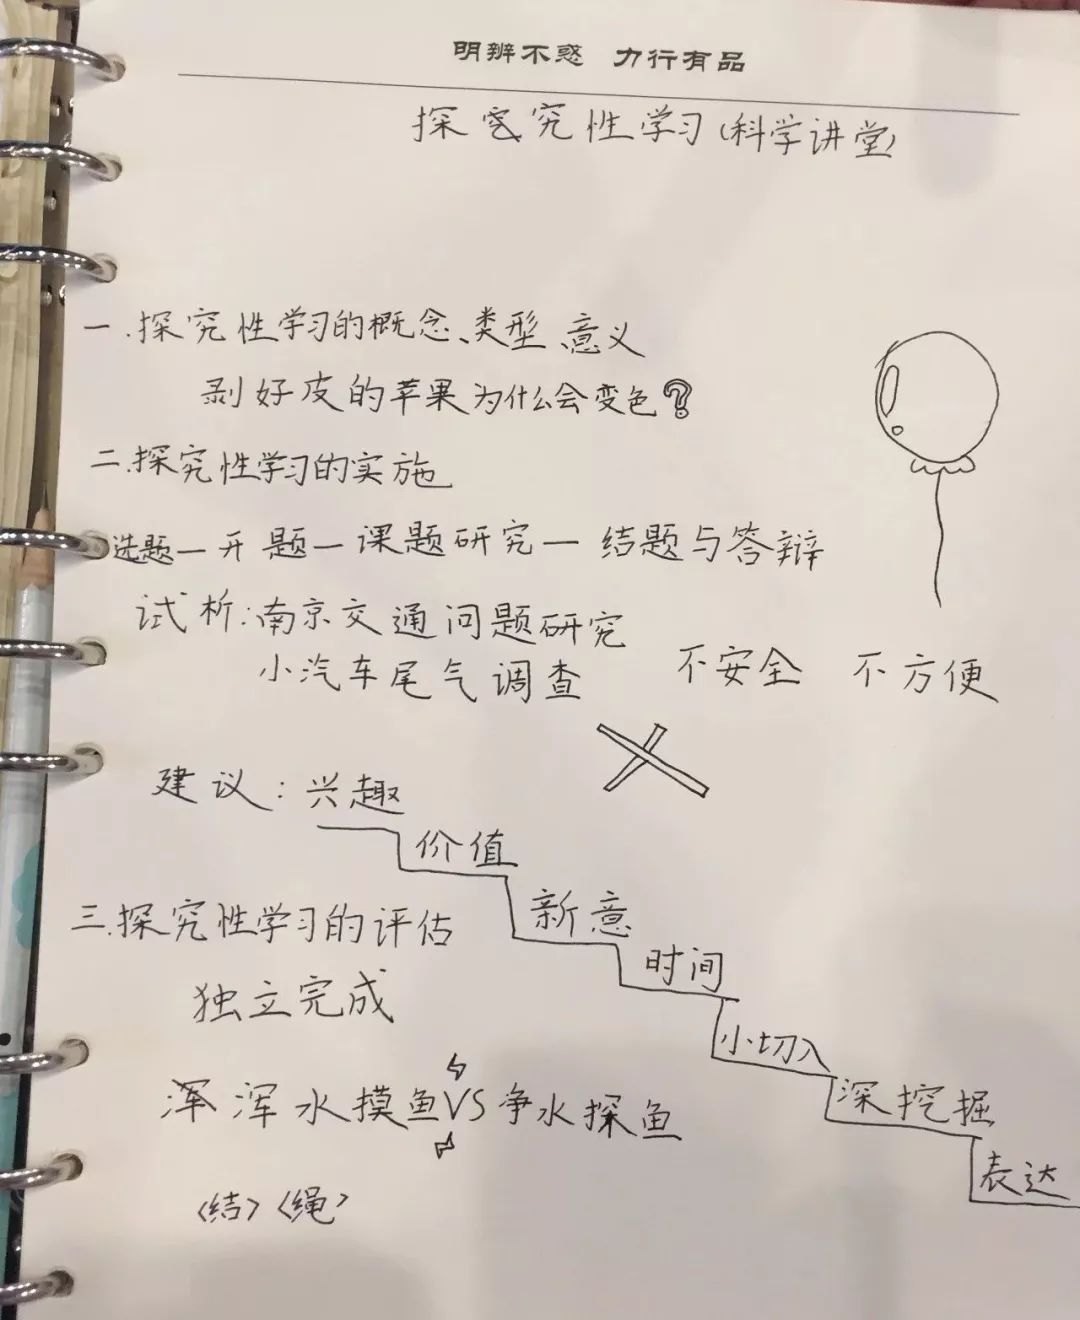 明辨不惑 力行有品
探究性学习(科学讲堂)
一.探究性学习的概念、类型、意义
剥好皮的苹果为什么会变色?
二.探究性学习的实施
选题—开题—课题研究—结题与答辩
试析:南京交通问题研究
小汽车尾气调查 不安全 不方便
建议:兴趣
价值
新意
时间
小切入
深挖掘
表达
三.探究性学习的评估
独立完成
浑水摸鱼VS净水探鱼
〈结〉〈绳〉